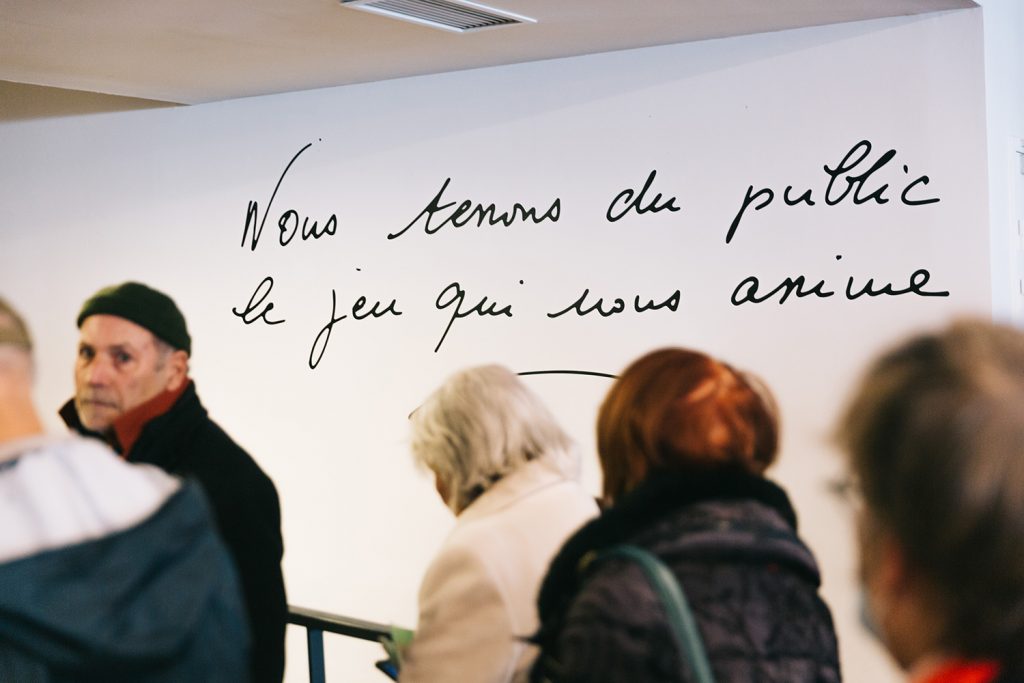 Nous tenons du public
le jeu qui nous anime